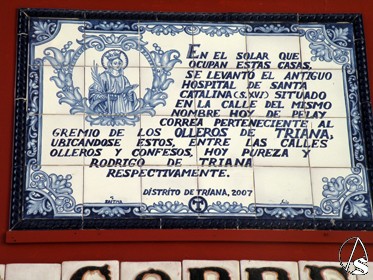 EN EL SOLAR QUE
OCUPAN ESTAS CASAS,
SE LEVANTÓ EL ANTIGUO
HOSPITAL DE SANTA
CATALINA (S.XVI) SITUADO
EN LA CALLE DEL MISMO
NOMBRE HOY DE PELAY
CORREA PERTENECIENTE AL
GREMIO DE LOS OLLEROS DE TRIANA,
UBICANDOSE ESTOS, ENTRE LAS CALLES
OLLEROS Y CONFESOS, HOY PUREZA Y
RODRIGO DE TRIANA
RESPECTIVAMENTE.
DISTRITO DE TRIANA, 2007